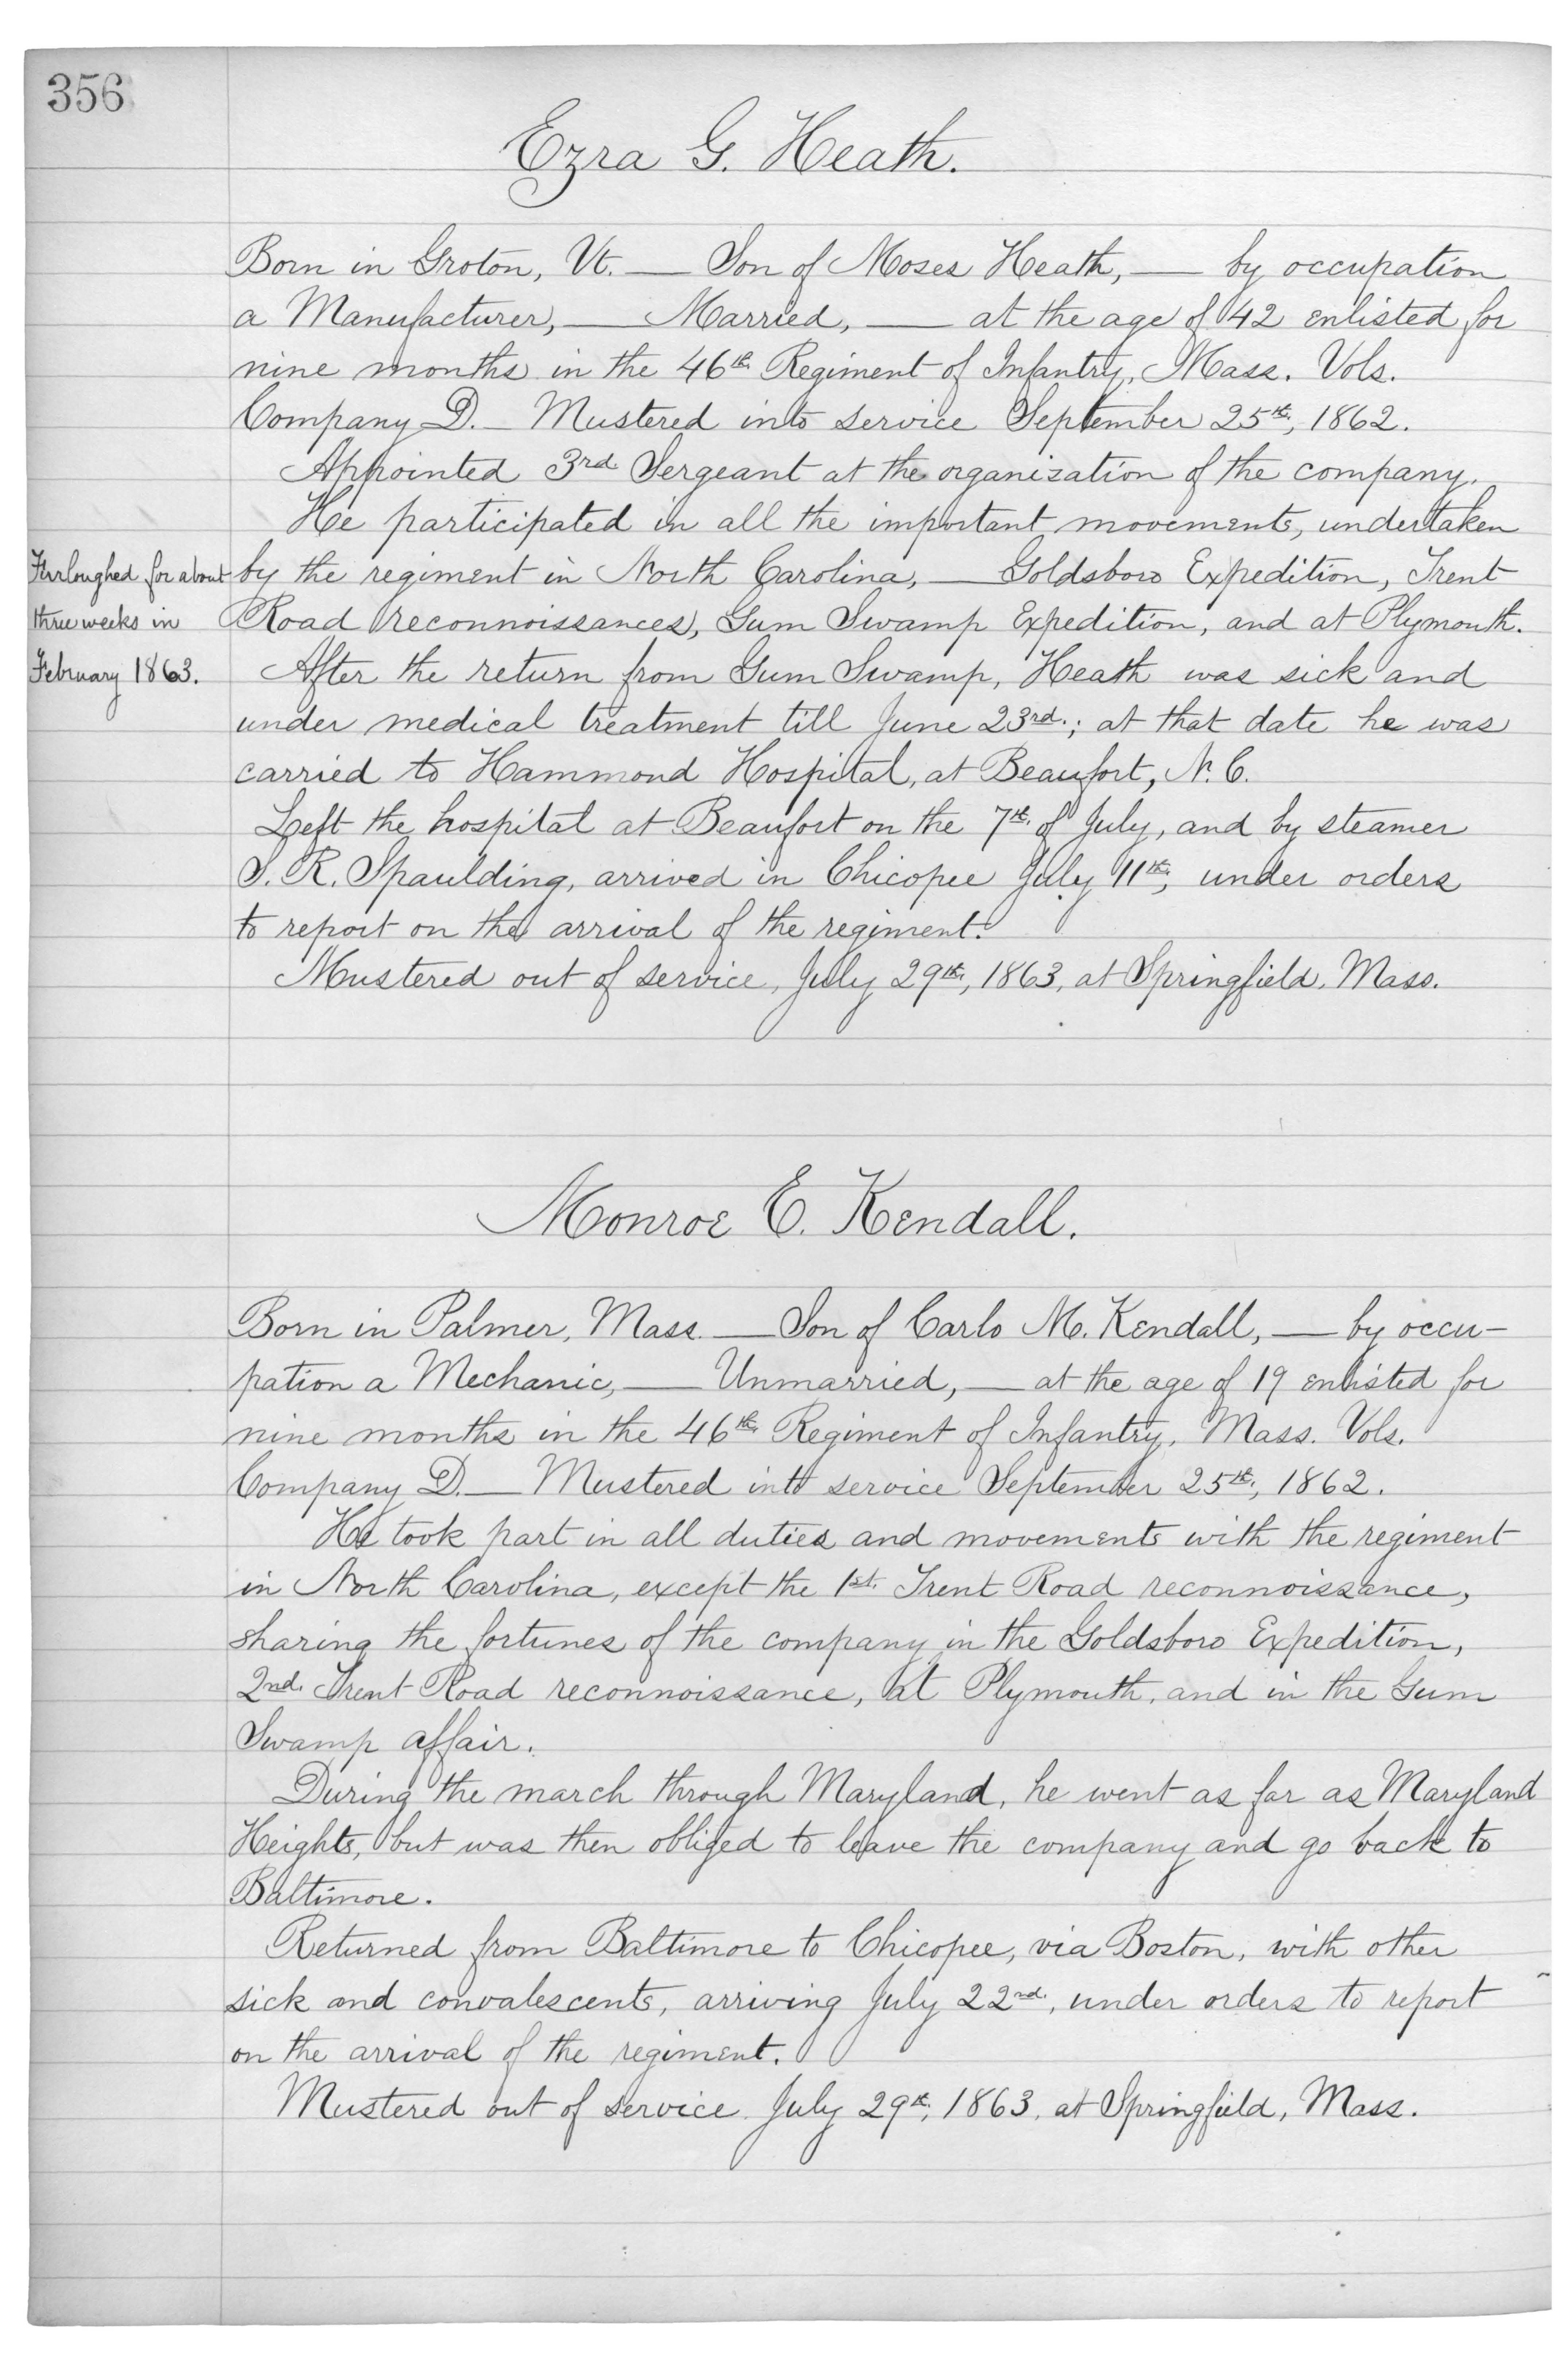 356
Ezra G. Heath.
Born in Groton, Vt. — Son of Moses Heath, — by occupation
a Manufacturer, — Married, — at the age of 42 enlisted for
nine months in the 46th Regiment of Infantry, Mass. Vols.
Company D. — Mustered into service September 25th, 1862.
Appointed 3rd Sergeant at the organization of the company.
He participated in all the important movements, undertaken
by the regiment in North Carolina, — Goldsboro Expedition, Trent
Road reconnoissances, Gum Swamp Expedition, and at Plymouth.
Furloughed for about
three weeks in
February 1863.
After the return from Gum Swamp, Heath was sick and
under medical treatment till June 23rd.; at that date he was
carried to Hammond Hospital, at Beaufort, N.C.
Left the hospital at Beaufort on the 7th. of July, and by steamer
S. R. Spaulding, arrived in Chicopee July 11th, under orders
to report on the arrival of the regiment.
Mustered out of service, July 29th, 1863, at Springfield, Mass.
Monroe E. Kendall.
Born in Palmer, Mass. — Son of Carlo M. Kendall, — by occu-
pation a Mechanic, — Unmarried, — at the age of 19 enlisted for
nine months in the 46th Regiment of Infantry, Mass. Vols.
Company D. — Mustered into service September 25th, 1862.
He took part in all duties and movements with the regiment
in North Carolina, except the 1st. Trent Road reconnoissance,
sharing the fortunes of the company in the Goldsboro Expedition,
2nd. Trent Road reconnoissance, at Plymouth, and in the Gum
Swamp affair.
During the march through Maryland, he went as far as Maryland
Heights, but was then obliged to leave the company and go back to
Baltimore.
Returned from Baltimore to Chicopee, via Boston, with other
sick and convalescents, arriving July 22nd., under orders to report
on the arrival of the regiment.
Mustered out of service July 29th, 1863, at Springfield, Mass.